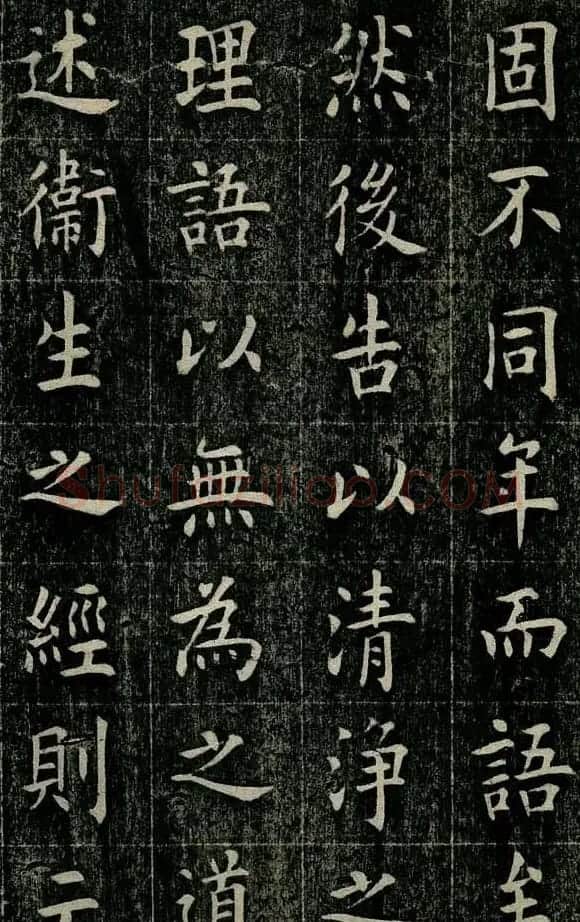 固不同年而語矣
然後告以清浄之
理語以無為之道
述衞生之經則
Shufaziliao.COM